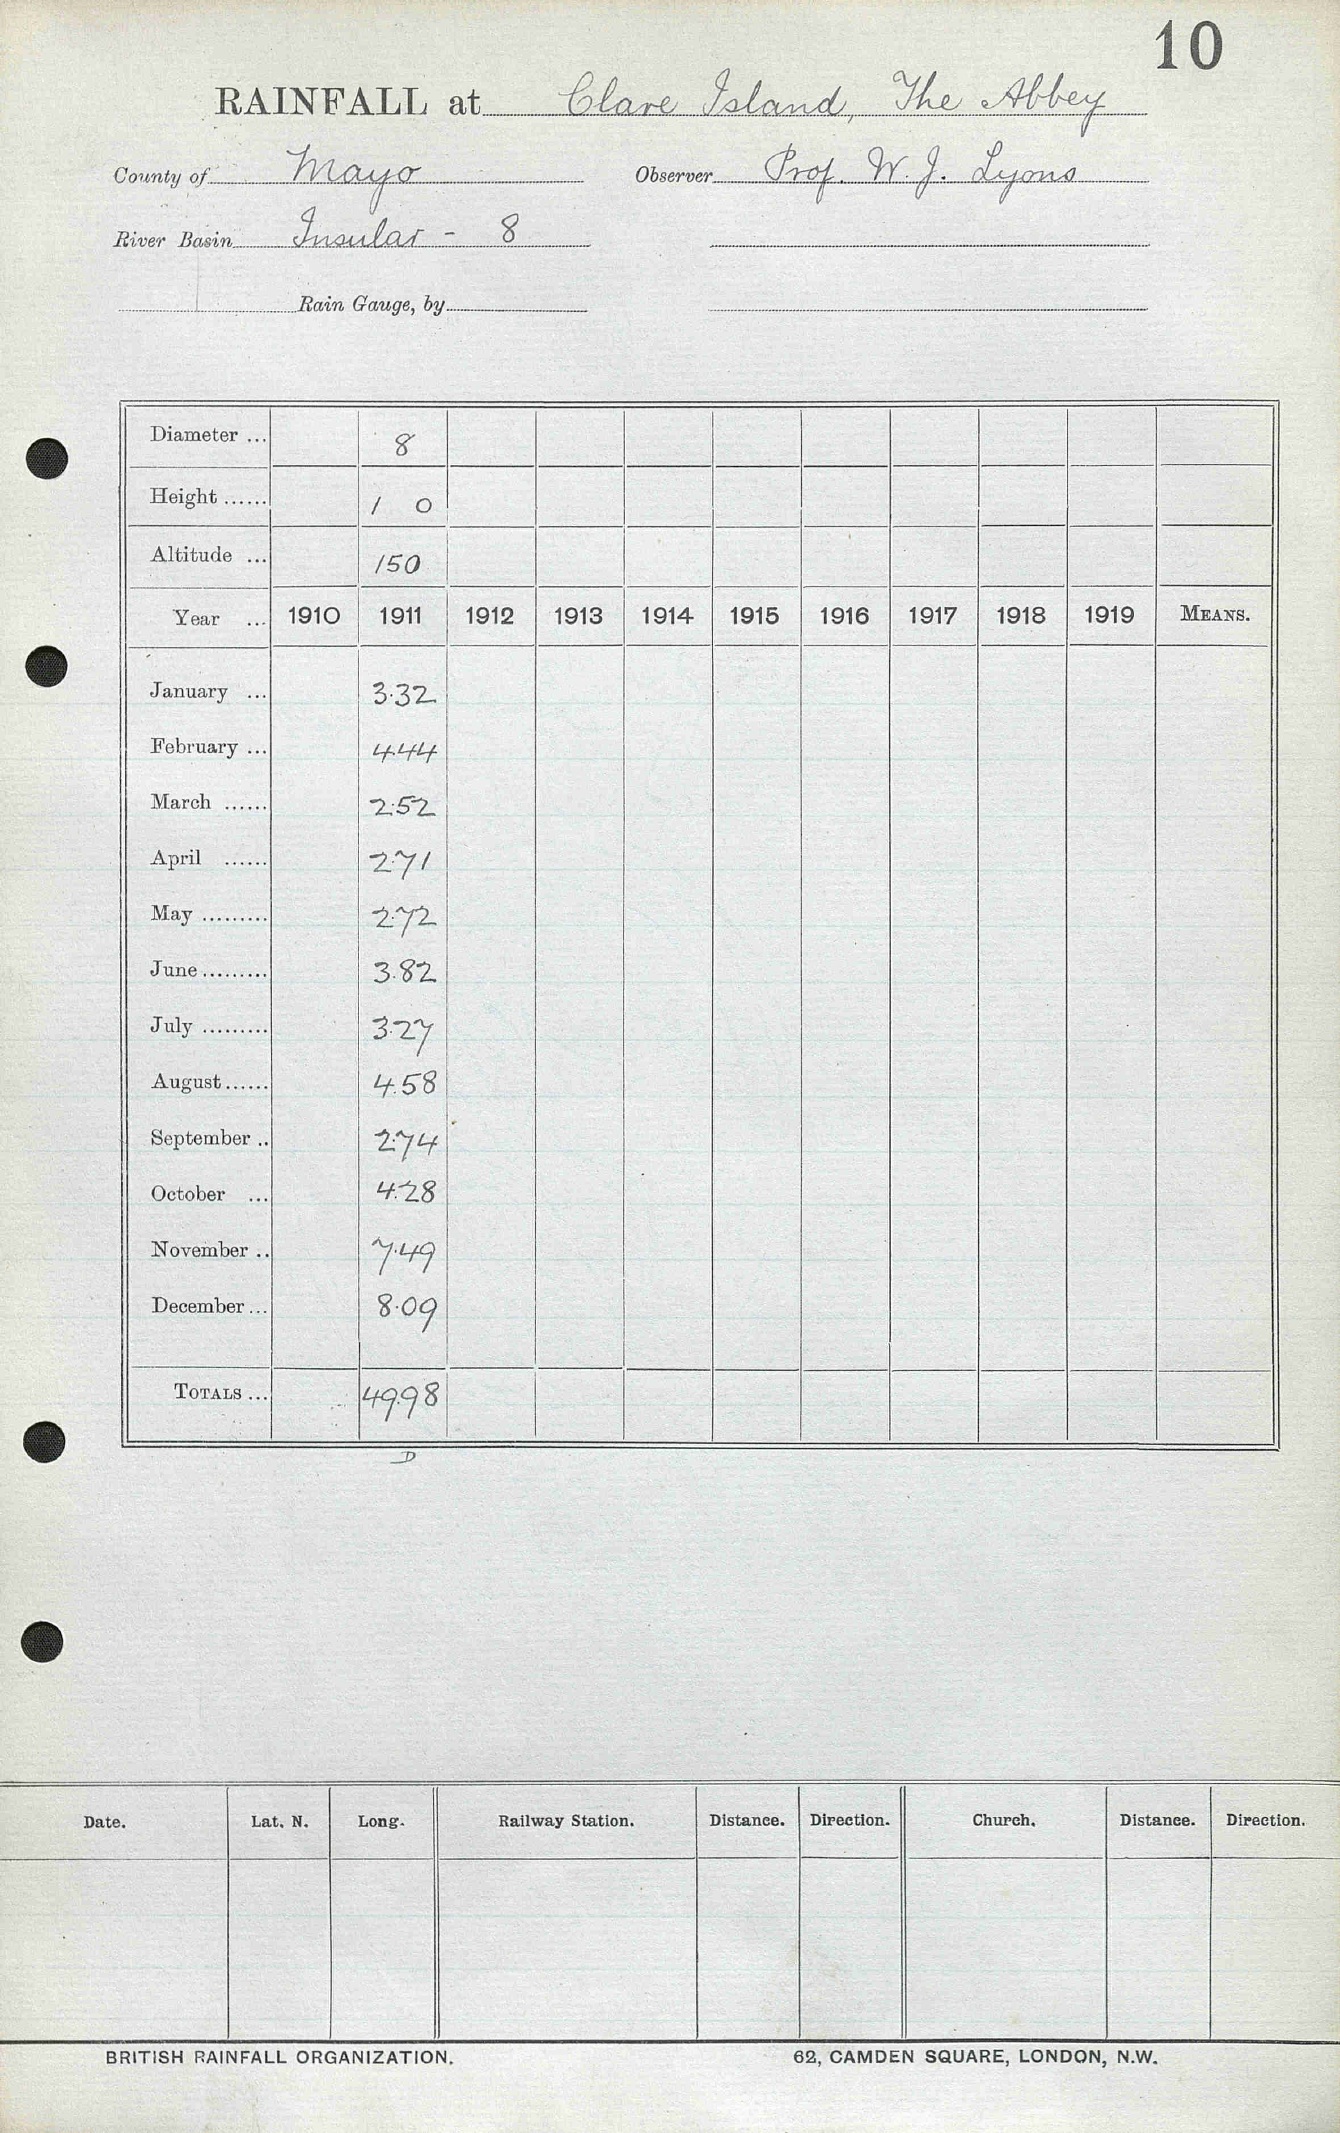 10
RAINFALL at Clare Island, The Abbey
County of Mayo Observer Prof. W. J. Lyons
River Basin Insular - 8
Rain Gauge, by
Diameter ... 8
Height ...... 1 0
Altitude ... 150
Year ... 1910 1911 1912 1913 1914 1915 1916 1917 1918 1919 MEANS.
January ... 3.32
February ... 4.44
March ...... 2.52
April ...... 2.71
May ......... 2.72
June ......... 3.82
July ......... 3.27
August...... 4.58
September .. 2.74
October ... 4.28
November .. 7.49
December ... 8.09
TOTALS ... 49.98
D
Date. Lat. N. Long. Railway Station. Distance. Direction. Church. Distance. Direction.
BRITISH RAINFALL ORGANIZATION. 62, CAMDEN SQUARE, LONDON, N.W.